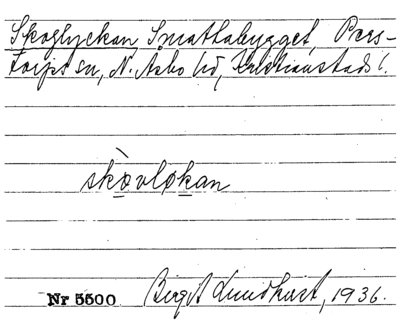 Skoglyckan, Smathabygget, Pers-
torps sn, N. Åsbo hd, Kristianstads l.
skòvlokan
Nr 5500 Birgit Lundkvist, 1936.